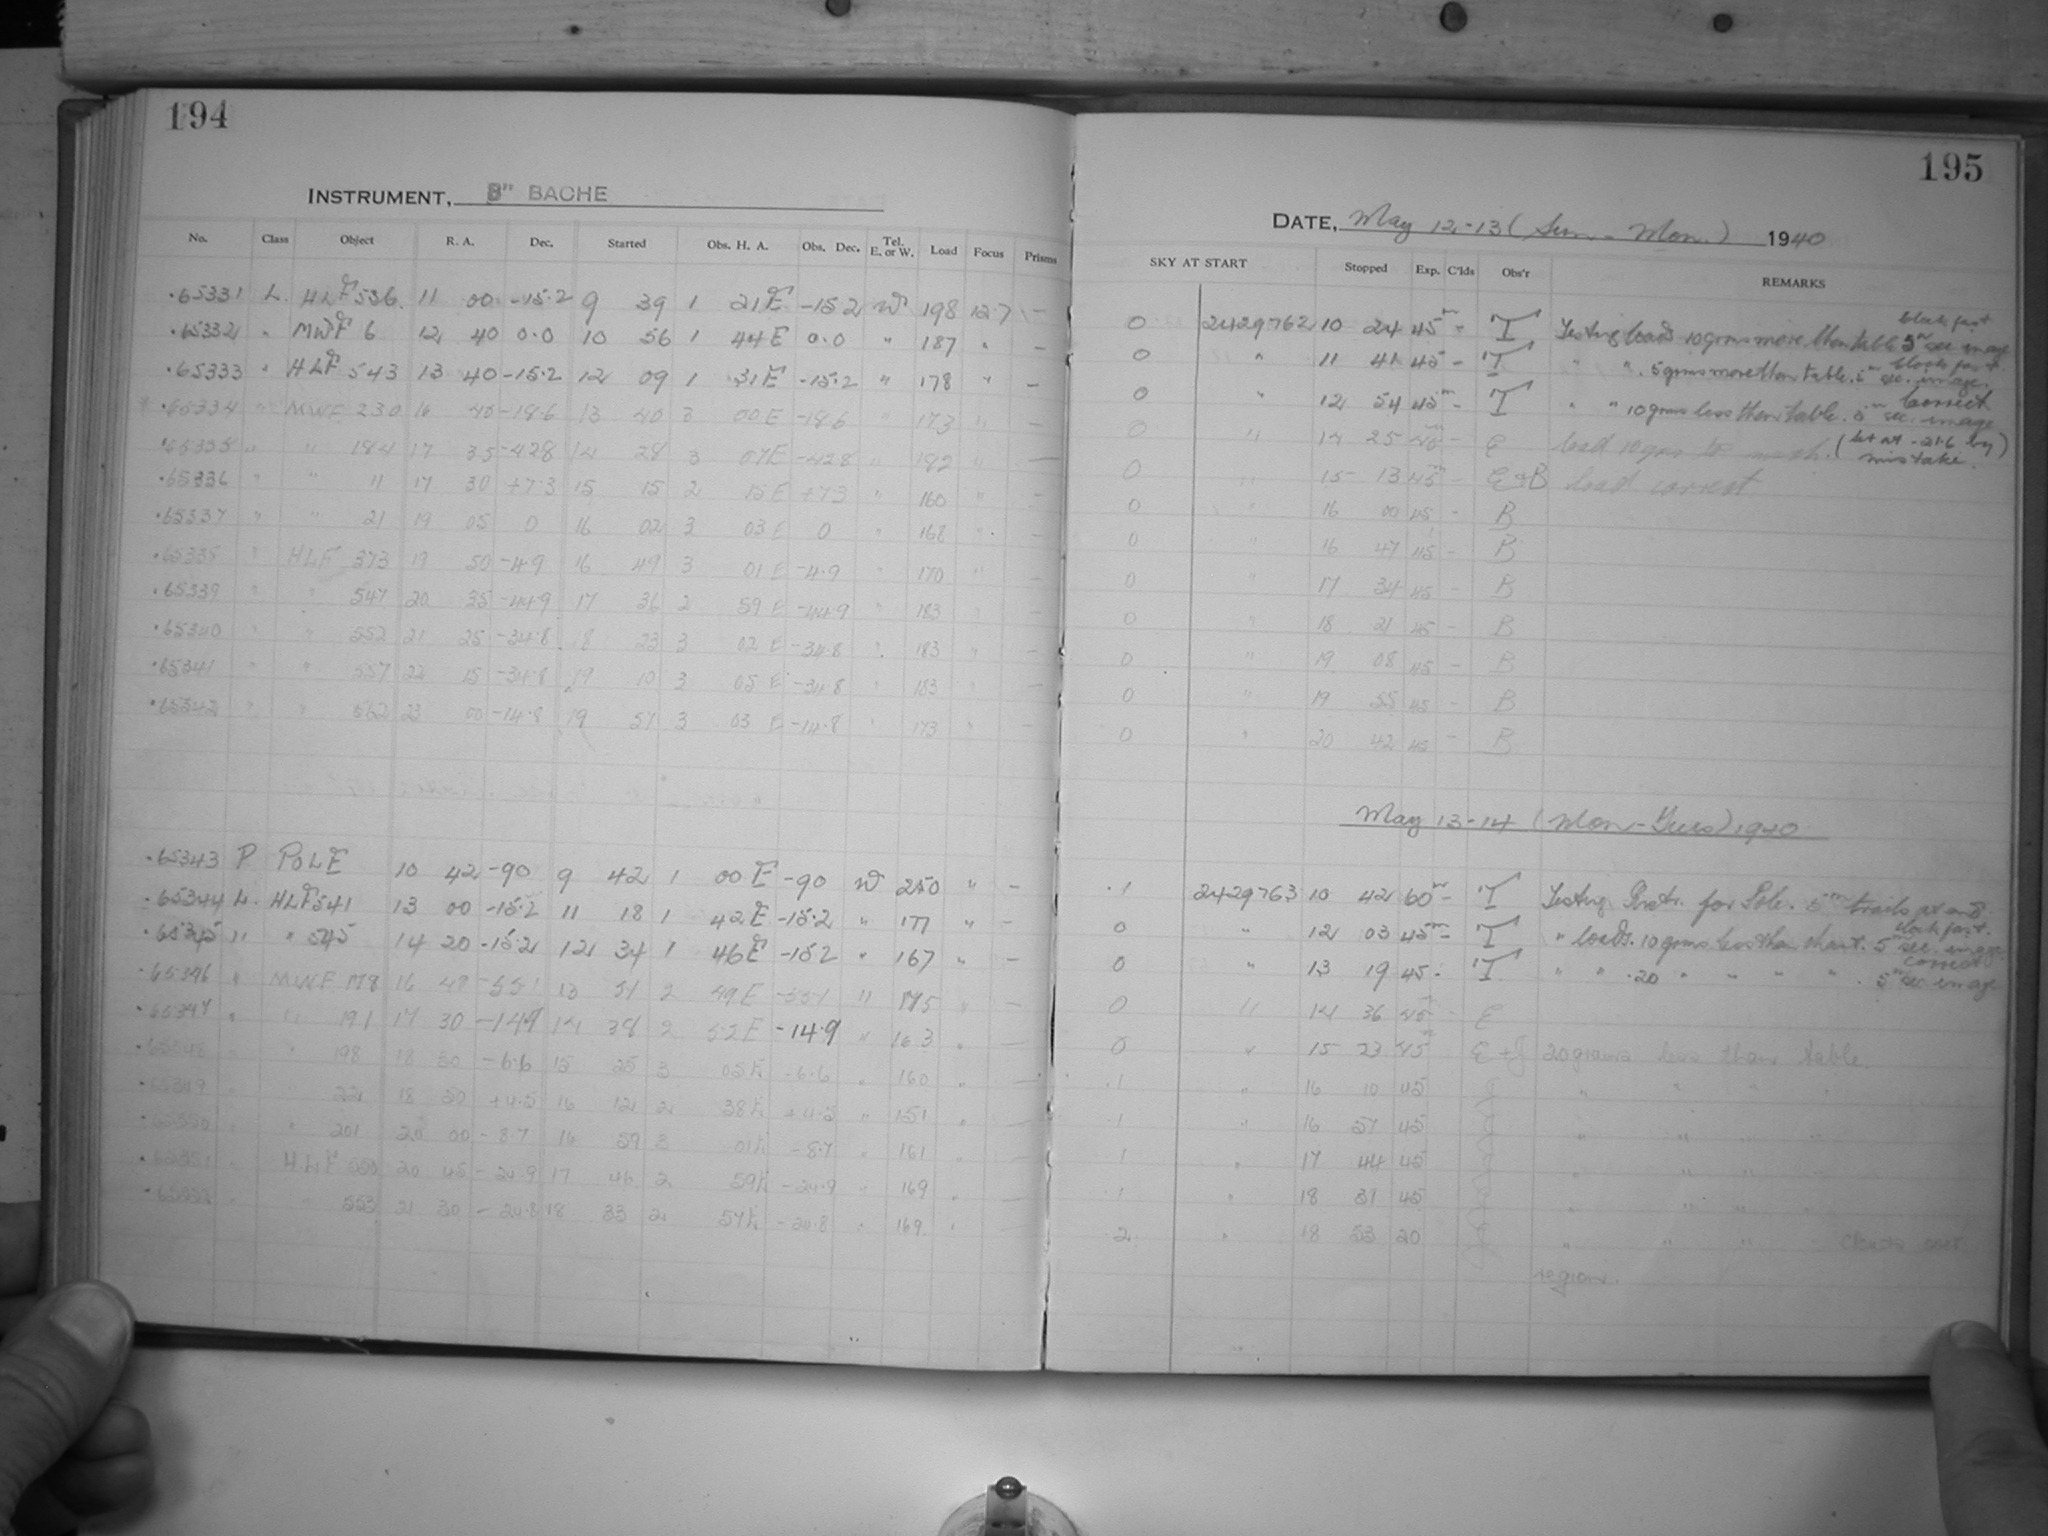 194
INSTRUMENT, 8" BACHE
No. Class Object R. A. Dec. Started Obs. H. A. Obs. Dec. Tel. E. or W. Load Focus Prisms
.65331 L. HLF 536. 11 00 -15.2 9 39 1 21 E -15.2 W 198 12.7 -
.65332 " MWF 6 12 40 0.0 10 56 1 44 E 0.0 " 187 " -
.65333 " HLF 543 13 40 -15.2 12 09 1 31 E -15.2 " 178 " -
.65334 " MWF 230 16 40 -18.6 13 40 3 00 E -18.6 173 " -
.65335 " " 184 17 35 -42.8 14 28 3 07 E -42.8 " 192 " -
.65336 " " 11 17 30 +7.3 15 15 2 15 E +7.3 " 160 " -
.65337 " " 21 19 05 0 16 02 3 03 E 0 " 168 " -
.65338 " HLF 373 19 50 -4.9 16 49 3 01 E -4.9 " 170 " -
.65339 " " 547 20 35 -44.9 17 36 2 59 E -44.9 " 183 " -
.65340 " " 552 21 25 -34.8 18 23 3 02 E -34.8 " 183 " -
.65341 " " 557 22 15 -34.8 19 10 3 05 E -34.8 " 183 " -
.65342 " " 562 23 00 -14.8 19 57 3 03 E -14.8 " 173 " -
.65343 P POLE 10 42 -90 9 42 1 00 E -90 W 250 " -
.65344 L. HLF 541 13 00 -15.2 11 18 1 42 E -15.2 " 177 " -
.65345 " " 545 14 20 -15.2 12 34 1 46 E -15.2 " 167 " -
.65346 " MWF 178 16 40 -55.1 13 51 2 49 E -55.1 " 175 "
.65347 " " 191 17 30 -14.9 14 38 2 52 E -14.9 " 163 "
.65348 " 198 18 30 -6.6 15 25 3 05 E -6.6 " 160 " -
.65349 22 18 50 +4.5 16 12 2 38 E +4.5 " 151 "
.65350 " 201 20 00 -8.7 16 59 3 01 E -8.7 161
.65351 HLF 550 20 45 -24.9 17 46 2 59 E -24.9 " 169 "
.65352 553 21 30 -24.8 18 33 2 57 E -24.8 " 169 "
195
DATE, May 12-13 (Sun. - Mon.) 1940
SKY AT START Stopped Exp. C'lds Obs'r REMARKS
0 2429762 10 24 45m - T Testing loads 10 grms more than table 5m sec image clock fast
0 " 11 41 45 - T " " 5 grms more than table. 5m sec. image. clock fast
0 " 12 54 45m - T " " 10 grms less than table. 5m sec. image Correct
0 " 14 25 45m - E load 10 gms to much. (set at -21.6 by mistake.)
0 " 15 13 45m - E + B load correct
0 " 16 00 45 - B
0 " 16 47 45 - B
0 " 17 34 45 - B
0 " 18 21 45 - B
0 " 19 08 45 - B
0 " 19 55 45 - B
0 " 20 42 45 - B
May 13-14 (Mon-Tues) 1940
.1 2429763 10 42 60m - T Testing for Pole. 5m trails
0 " 12 03 45m - T " loads. 10 grms less than chart. 5m sec. image clock fast.
0 " 13 19 45 - T " " 20 " " " " 5m sec image correct
0 " 14 36 45m - E
0 " 15 23 45m E + J 20 grams less than table.
.1 " 16 10 45 J " " " "
.1 " 16 57 45 J " " " "
.1 " 17 44 45 J " " "
.1 " 18 31 45 J " " "
2 " 18 53 20 J " " " Clouds over
region.